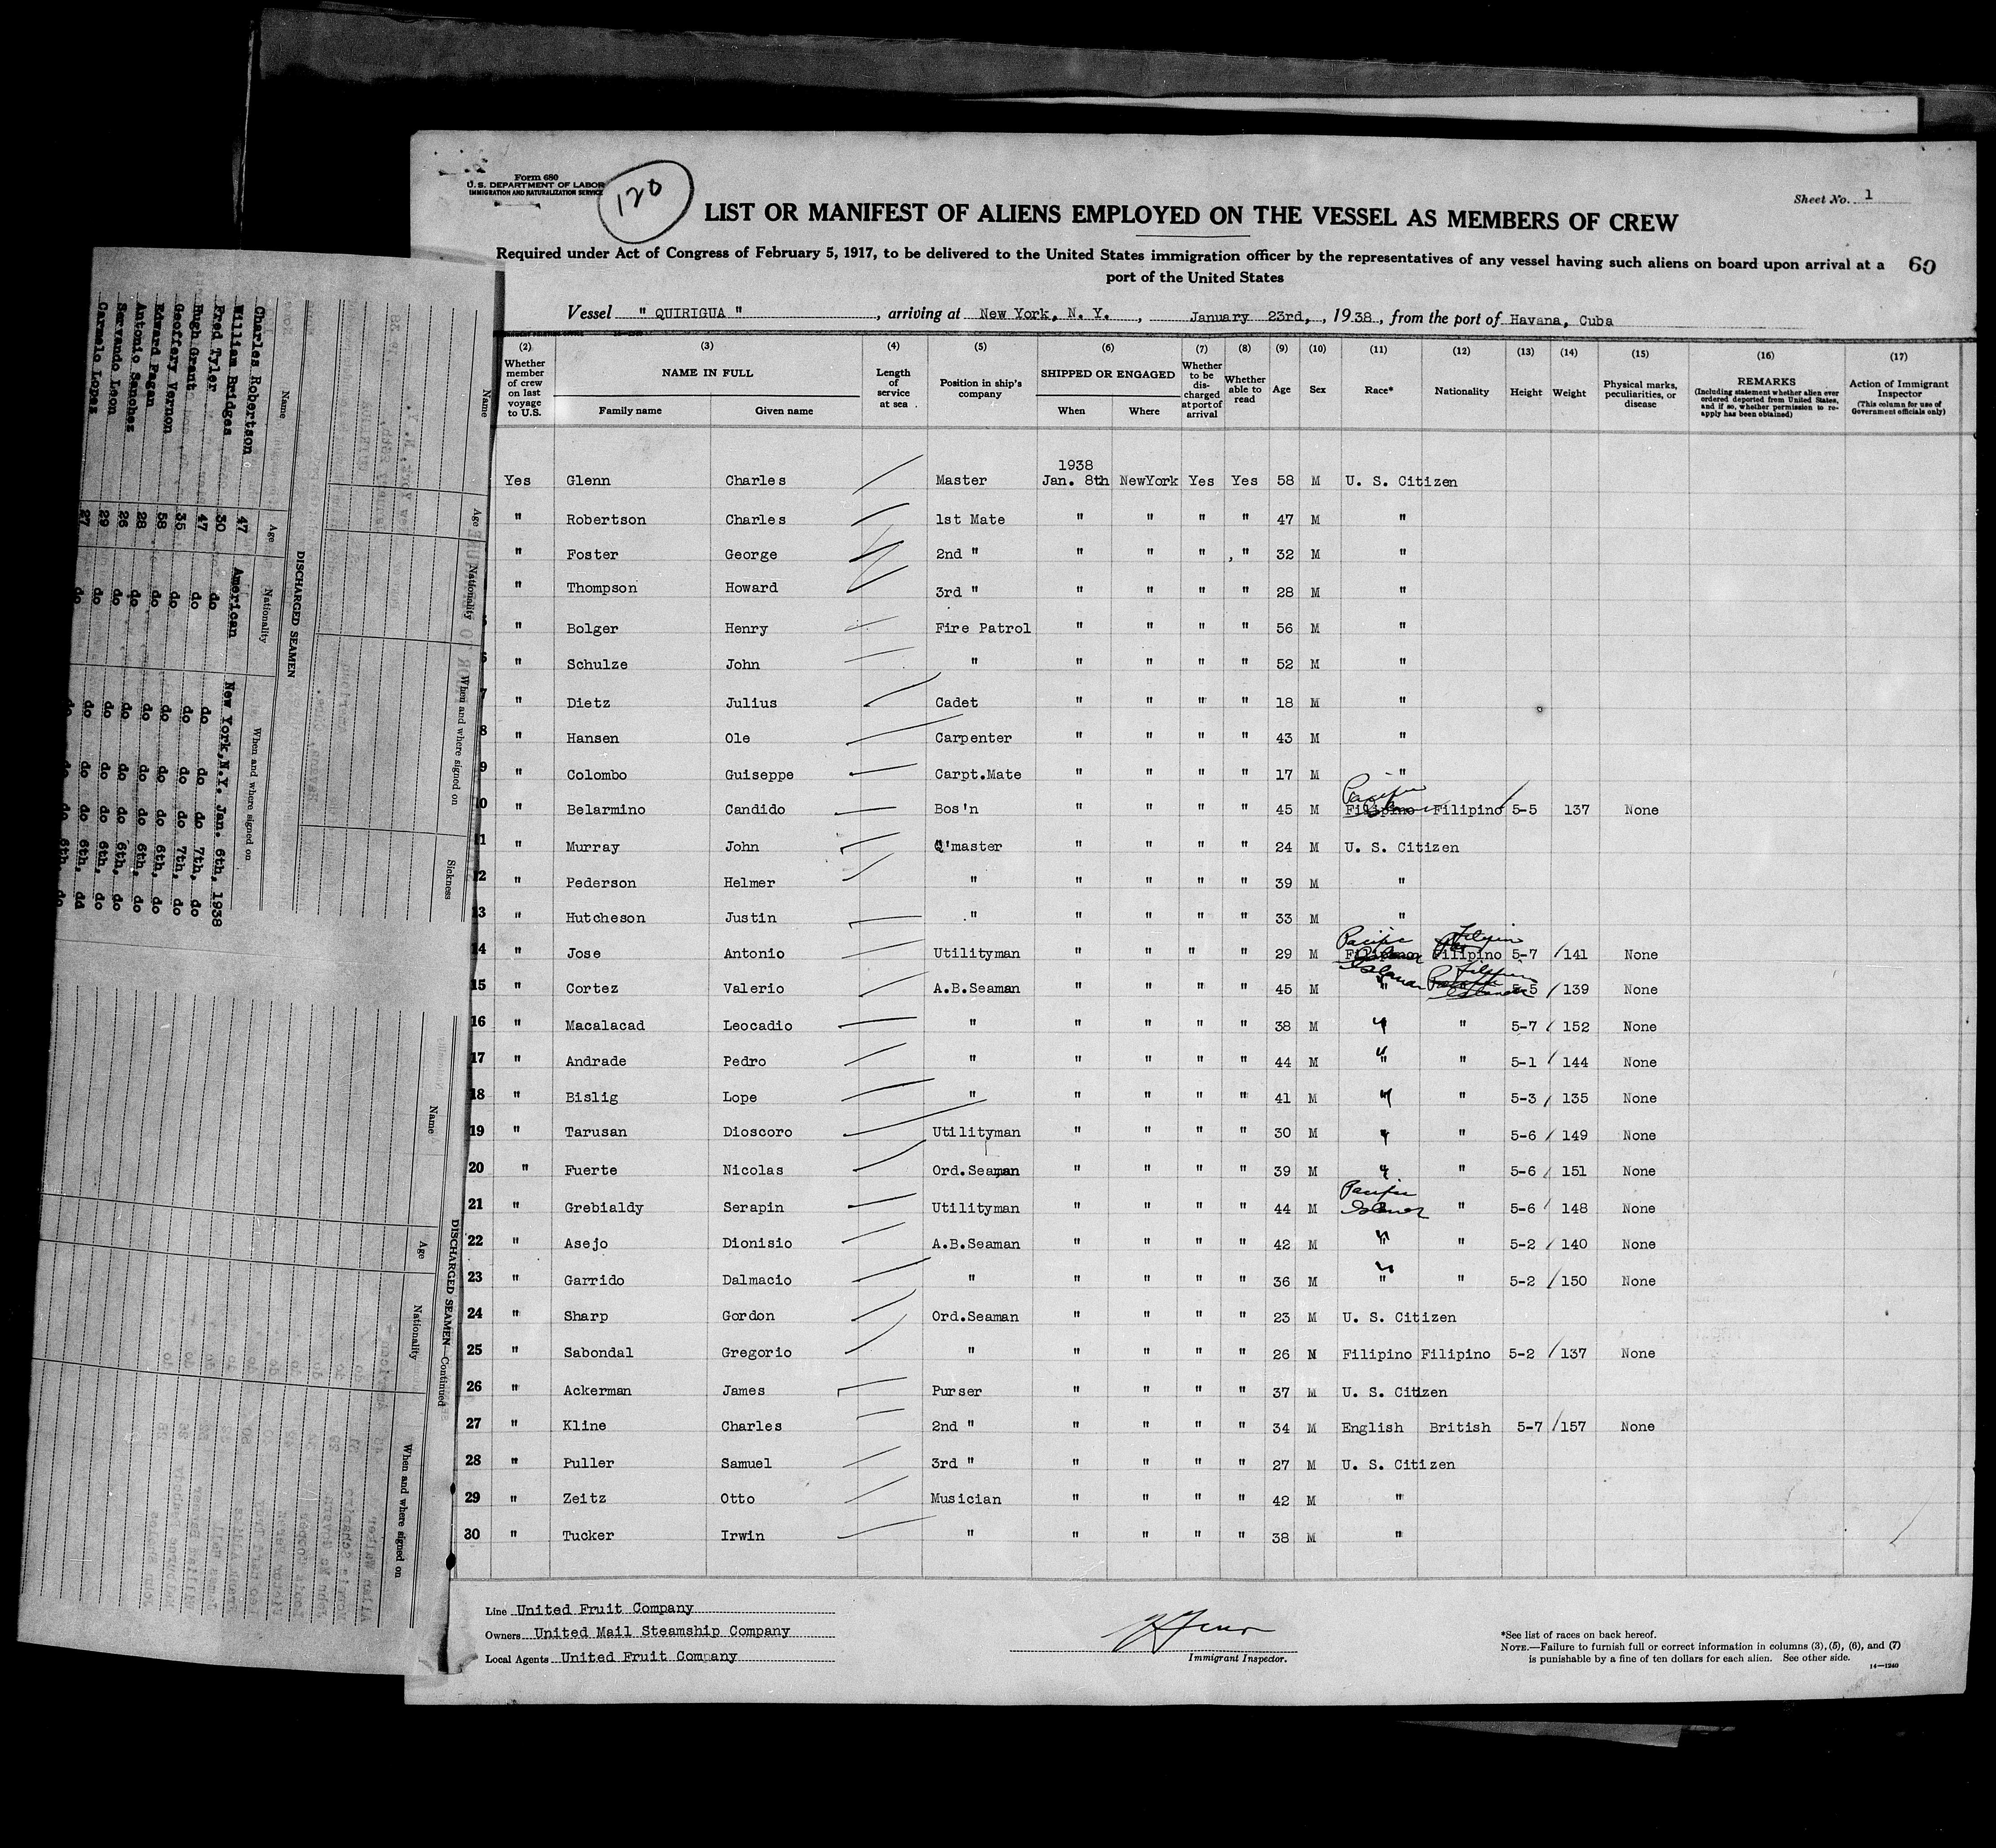 Form 680
U. S. DEPARTMENT OF LABOR
IMMIGRATION AND NATURALIZATION SERVICE
120
Sheet No. 1
LIST OR MANIFEST OF ALIENS EMPLOYED ON THE VESSEL AS MEMBERS OF CREW
Required under Act of Congress of February 5, 1917, to be delivered to the United States immigration officer by the representatives of any vessel having such aliens on board upon arrival at a
port of the United States
60
Vessel " QUIRIGUA " , arriving at New York, N. Y. , January 23rd, , 1938, from the port of Havana, Cuba
(2) (3) (4) (5) (6) (7) (8) (9) (10) (11) (12) (13) (14) (15) (16) (17)
Whether member of crew on last voyage to U.S. NAME IN FULL Family name Given name Length of service at sea Position in ship's company SHIPPED OR ENGAGED When Where Whether to be discharged at port of arrival Whether able to read Age Sex Race* Nationality Height Weight Physical marks, peculiarities, or disease REMARKS (Including statement whether alien ever ordered deported from United States, and if so, whether permission to reapply has been obtained) Action of Immigrant Inspector (This column for use of Government officials only)
1938
Yes Glenn Charles Master Jan. 8th NewYork Yes Yes 58 M U. S. Citizen
" Robertson Charles 1st Mate " " " " 47 M "
" Foster George 2nd " " " " " 32 M "
" Thompson Howard 3rd " " " " " 28 M "
" Bolger Henry Fire Patrol " " " " 56 M "
" Schulze John " " " " " 52 M "
7 " Dietz Julius Cadet " " " " 18 M "
8 " Hansen Ole Carpenter " " " " 43 M "
9 " Colombo Guiseppe Carpt.Mate " " " " 17 M "
Pacific
10 " Belarmino Candido Bos'n " " " " 45 M Filipino Filipino 5-5 137 None
11 " Murray John Q'master " " " " 24 M U. S. Citizen
12 " Pederson Helmer " " " " " 39 M "
13 " Hutcheson Justin " " " " " 33 M "
Pacific Filipino
14 " Jose Antonio Utilityman " " " " 29 M Filipino Filipino 5-7 141 None
15 " Cortez Valerio A.B.Seaman " " " " 45 M " 5-5 139 None
16 " Macalacad Leocadio " " " " " 38 M " " 5-7 152 None
17 " Andrade Pedro " " " " " 44 M " " 5-1 144 None
18 " Bislig Lope " " " " " 41 M " " 5-3 135 None
19 " Tarusan Dioscoro Utilityman " " " " 30 M " " 5-6 149 None
20 " Fuerte Nicolas Ord.Seaman " " " " 39 M " " 5-6 151 None
Pacific
21 " Grebialdy Serapin Utilityman " " " " 44 M Islander " 5-6 148 None
22 " Asejo Dionisio A.B.Seaman " " " " 42 M " " 5-2 140 None
23 " Garrido Dalmacio " " " " " 36 M " " 5-2 150 None
24 " Sharp Gordon Ord.Seaman " " " " 23 M U. S. Citizen
25 " Sabondal Gregorio " " " " " 26 M Filipino Filipino 5-2 137 None
26 " Ackerman James Purser " " " " 37 M U. S. Citizen
27 " Kline Charles 2nd " " " " " 34 M English British 5-7 157 None
28 " Puller Samuel 3rd " " " " " 27 M U. S. Citizen
29 " Zeitz Otto Musician " " " " 42 M "
30 " Tucker Irwin " " " " " 38 M "
Line United Fruit Company
Owners United Mail Steamship Company
Local Agents United Fruit Company
Immigrant Inspector.
*See list of races on back hereof.
NOTE.—Failure to furnish full or correct information in columns (3), (5), (6), and (7)
is punishable by a fine of ten dollars for each alien. See other side.
14—1240
Name Age Nationality When and where signed on Sickness
DISCHARGED SEAMEN
Name Age Nationality When and where signed on
Charles Robertson 47 American New York,N.Y. Jan. 6th, 1938
William Bridges 30 do do do 7th, do
Fred Tyler 47 do do do 7th, do
Hugh Grant 35 do do do 6th, do
Geoffery Vernon 58 do do do 6th, do
Edward Pagan 28 do do do 6th, do
Antonio Sanchez 26 do do do 6th, do
Servando Leon 29 do do do 6th, dd
Carmelo Lopez 27 do do do 6th, do
DISCHARGED SEAMEN—Continued
Name Age Nationality When and where signed on